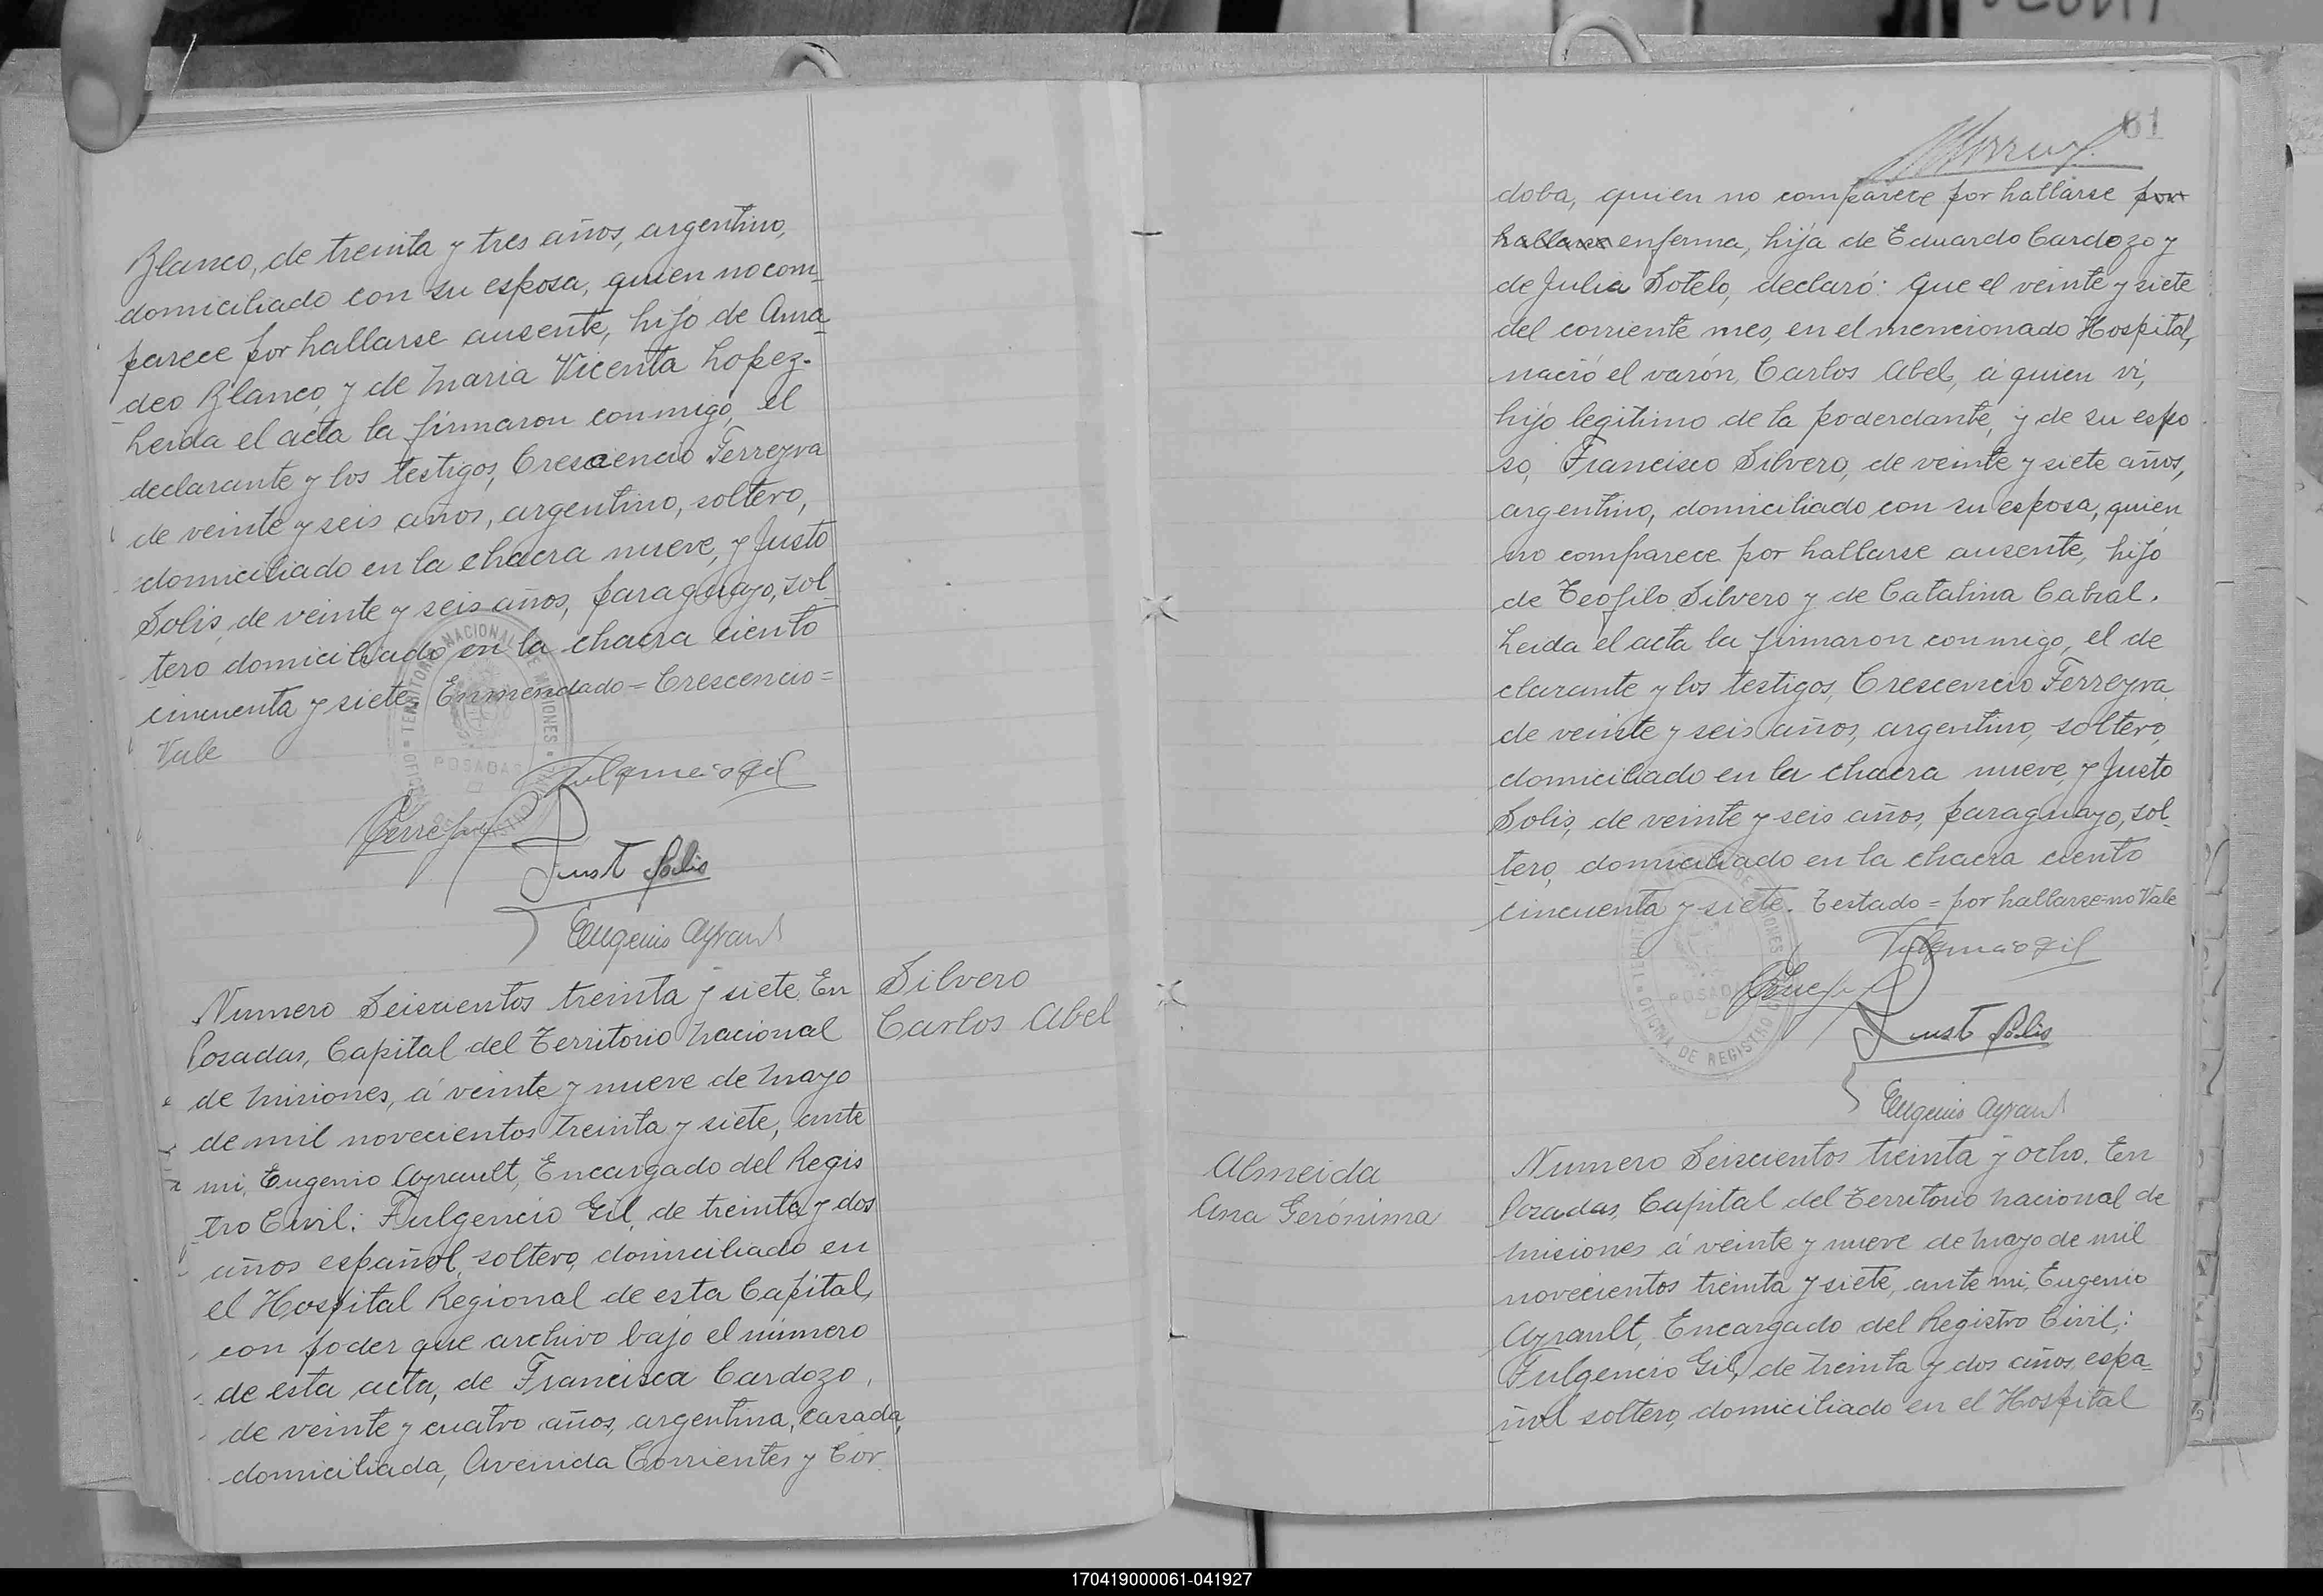 Blanco, de treinta y tres años, argentino,
domiciliado con su esposa, quien no com-
parece por hallarse ausente, hijo de Ama-
deo Blanco, y de Maria Vicenta Lopez.
Leida el acta la firmaron conmigo, el
declarante y los testigos, Crescencio Ferreyra
de veinte y seis años, argentino, soltero,
domiciliado en la chacra nueve, y Justo
Solis, de veinte y seis años, paraguayo, sol-
tero domiciliado en la chacra ciento
cincuenta y siete. Enmendado = Crescencio =
Vale
TERRITORIO NACIONAL DE MISIONES
POSADAS
Fulgencio Gil
Ferreyra
Just Solis
Eugenio Ayrault
Numero Seiscientos treinta y siete. En
Posadas, Capital del Territorio Nacional
de Misiones, á veinte y nueve de Mayo
de mil novecientos treinta y siete, ante
mi, Eugenio Ayrault, Encargado del Regis
tro Civil: Fulgencio Gil, de treinta y dos
años español, soltero, domiciliado en
el Hospital Regional de esta Capital,
con poder que archivo bajo el número
de esta acta, de Francisca Cardozo,
de veinte y cuatro años, argentina, casada,
domiciliada, Avenida Corrientes y Cór
Silvero
Carlos Abel
61
doba, quien no comparece por hallarse por
hallarse enferma, hija de Eduardo Cardozo y
de Julia Sotelo, declaró: que el veinte y siete
del corriente mes, en el mencionado Hospital,
nació el varón, Carlos Abel, á quien vi,
hijo legitimo de la poderdante, y de su espo
so, Francisco Silvero, de veinte y siete años,
argentino, domiciliado con su esposa, quien
no comparece por hallarse ausente, hijo
de Teofilo Silvero y de Catalina Cabral.
Leida el acta la firmaron conmigo, el de
clarante y los testigos, Crescencio Ferreyra
de veinte y seis años, argentino, soltero,
domiciliado en la chacra nueve, y Justo
Solis, de veinte y seis años, paraguayo, sol-
tero, domiciliado en la chacra ciento
cincuenta y siete. Testado = por hallarse = no Vale
Fulgencio Gil
Ferreyra
Just Solis
POSADAS
OFICINA DE REGISTRO
Eugenio Ayrault
Almeida
Ana Gerónima
Numero Seiscientos treinta y ocho. En
Posadas, Capital del Territorio Nacional de
Misiones á veinte y nueve de Mayo de mil
novecientos treinta y siete, ante mi, Eugenio
Ayrault, Encargado del Registro Civil:
Fulgencio Gil, de treinta y dos años, espa-
ñol soltero, domiciliado en el Hospital
170419000061-041927